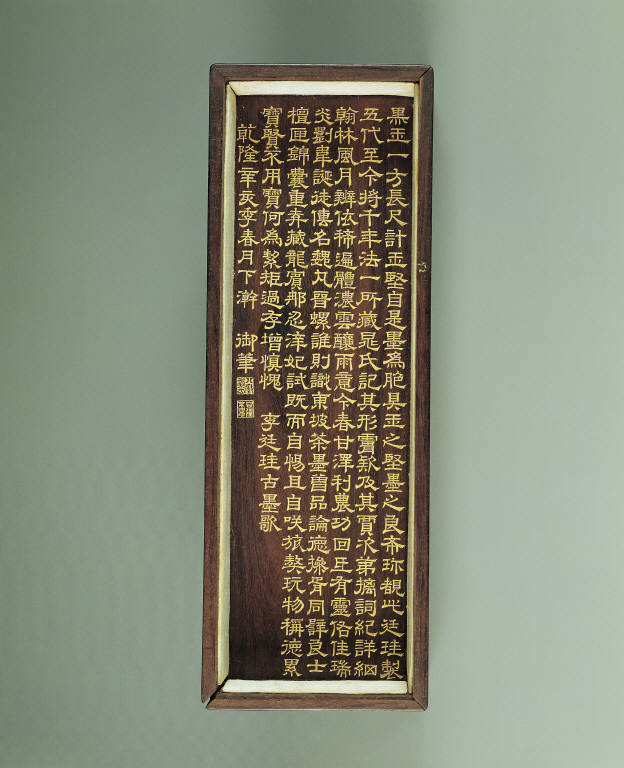 黒玉一方長尺計玉堅自是墨爲脆具玉之堅墨之良希珎覩此廷珪製
五代至今將千年法一所藏晁氏記其形欵及其賈次第摛詞紀詳細
翰林風月辧依稀遍體濃雲釀雨意今春甘澤利農功有靈佳瑞
炎劉韋誕徒傳名魏丸晉螺誰則識東坡茶墨舊品論德操胥同譬良士
檀匣錦囊重弆藏龍賓那忍淬妃試既而自惕且自咲旅獒玩物稱德累
寶賢不用寶何為絜矩過存增慎愧 李廷珪古墨歌
乾隆辛亥季春月下澣 御筆